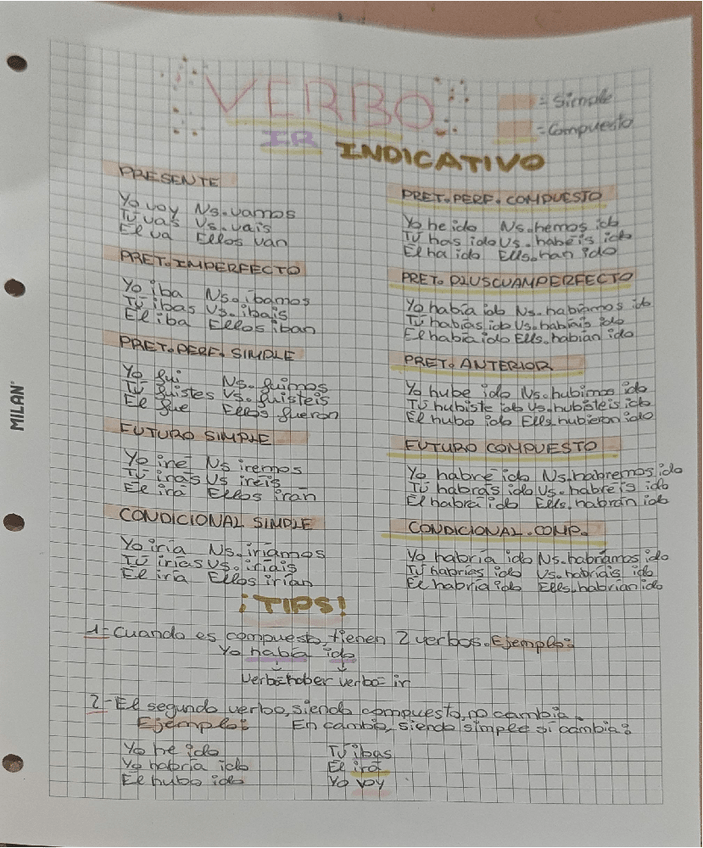 VERBO
= Simple
= Compuesto
IR INDICATIVO
PRESENTE
Yo voy Ns.vamos
Tú vas Vs.vais
El va Ellos van
PRET.IMPERFECTO
Yo iba Ns.íbamos
Tú ibas Vs.ibais
El iba Ellos iban
PRET.PERF.SIMPLE
Yo fui Ns.fuimos
Tú fuistes Vs.fuisteis
El fue Ellos fueron
FUTURO SIMPLE
Yo iré Ns iremos
Tú irás Vs iréis
El irá Ellos irán
CONDICIONAL SIMPLE
Yo iría Ns.iríamos
Tú irías Vs.iríais
El iría Ellos irían
PRET.PERF.COMPUESTO
Yo he ido Ns.hemos ido
Tú has ido Vs.habéis ido
El ha ido Ells.han ido
PRET.PLUSCUAMPERFECTO
Yo había ido Ns.habíamos ido
Tú habías ido Vs.habíais ido
El había ido Ells.habían ido
PRET.ANTERIOR
Yo hube ido Ns.hubimos ido
Tú hubiste ido Vs.hubisteis ido
El hubo ido Ells.hubieron ido
FUTURO COMPUESTO
Yo habré ido Ns.habremos ido
Tú habrás ido Vs.habréis ido
El habrá ido Ells.habrán ido
CONDICIONAL.COMP.
Yo habría ido Ns.habríamos ido
Tú habrías ido Vs.habríais ido
El habría ido Ells.habrían ido
¡TIPS!
1-Cuando es compuesto,tienen 2 verbos.Ejemplo:
Yo había ido
Verbo=haber verbo=ir
2-El segundo verbo,siendo compuesto,no cambia.
Ejemplo: En cambio,siendo simple sí cambia:
Yo he ido
Yo habría ido
El hubo ido
Tú ibas
El irá
Yo voy
MILAN